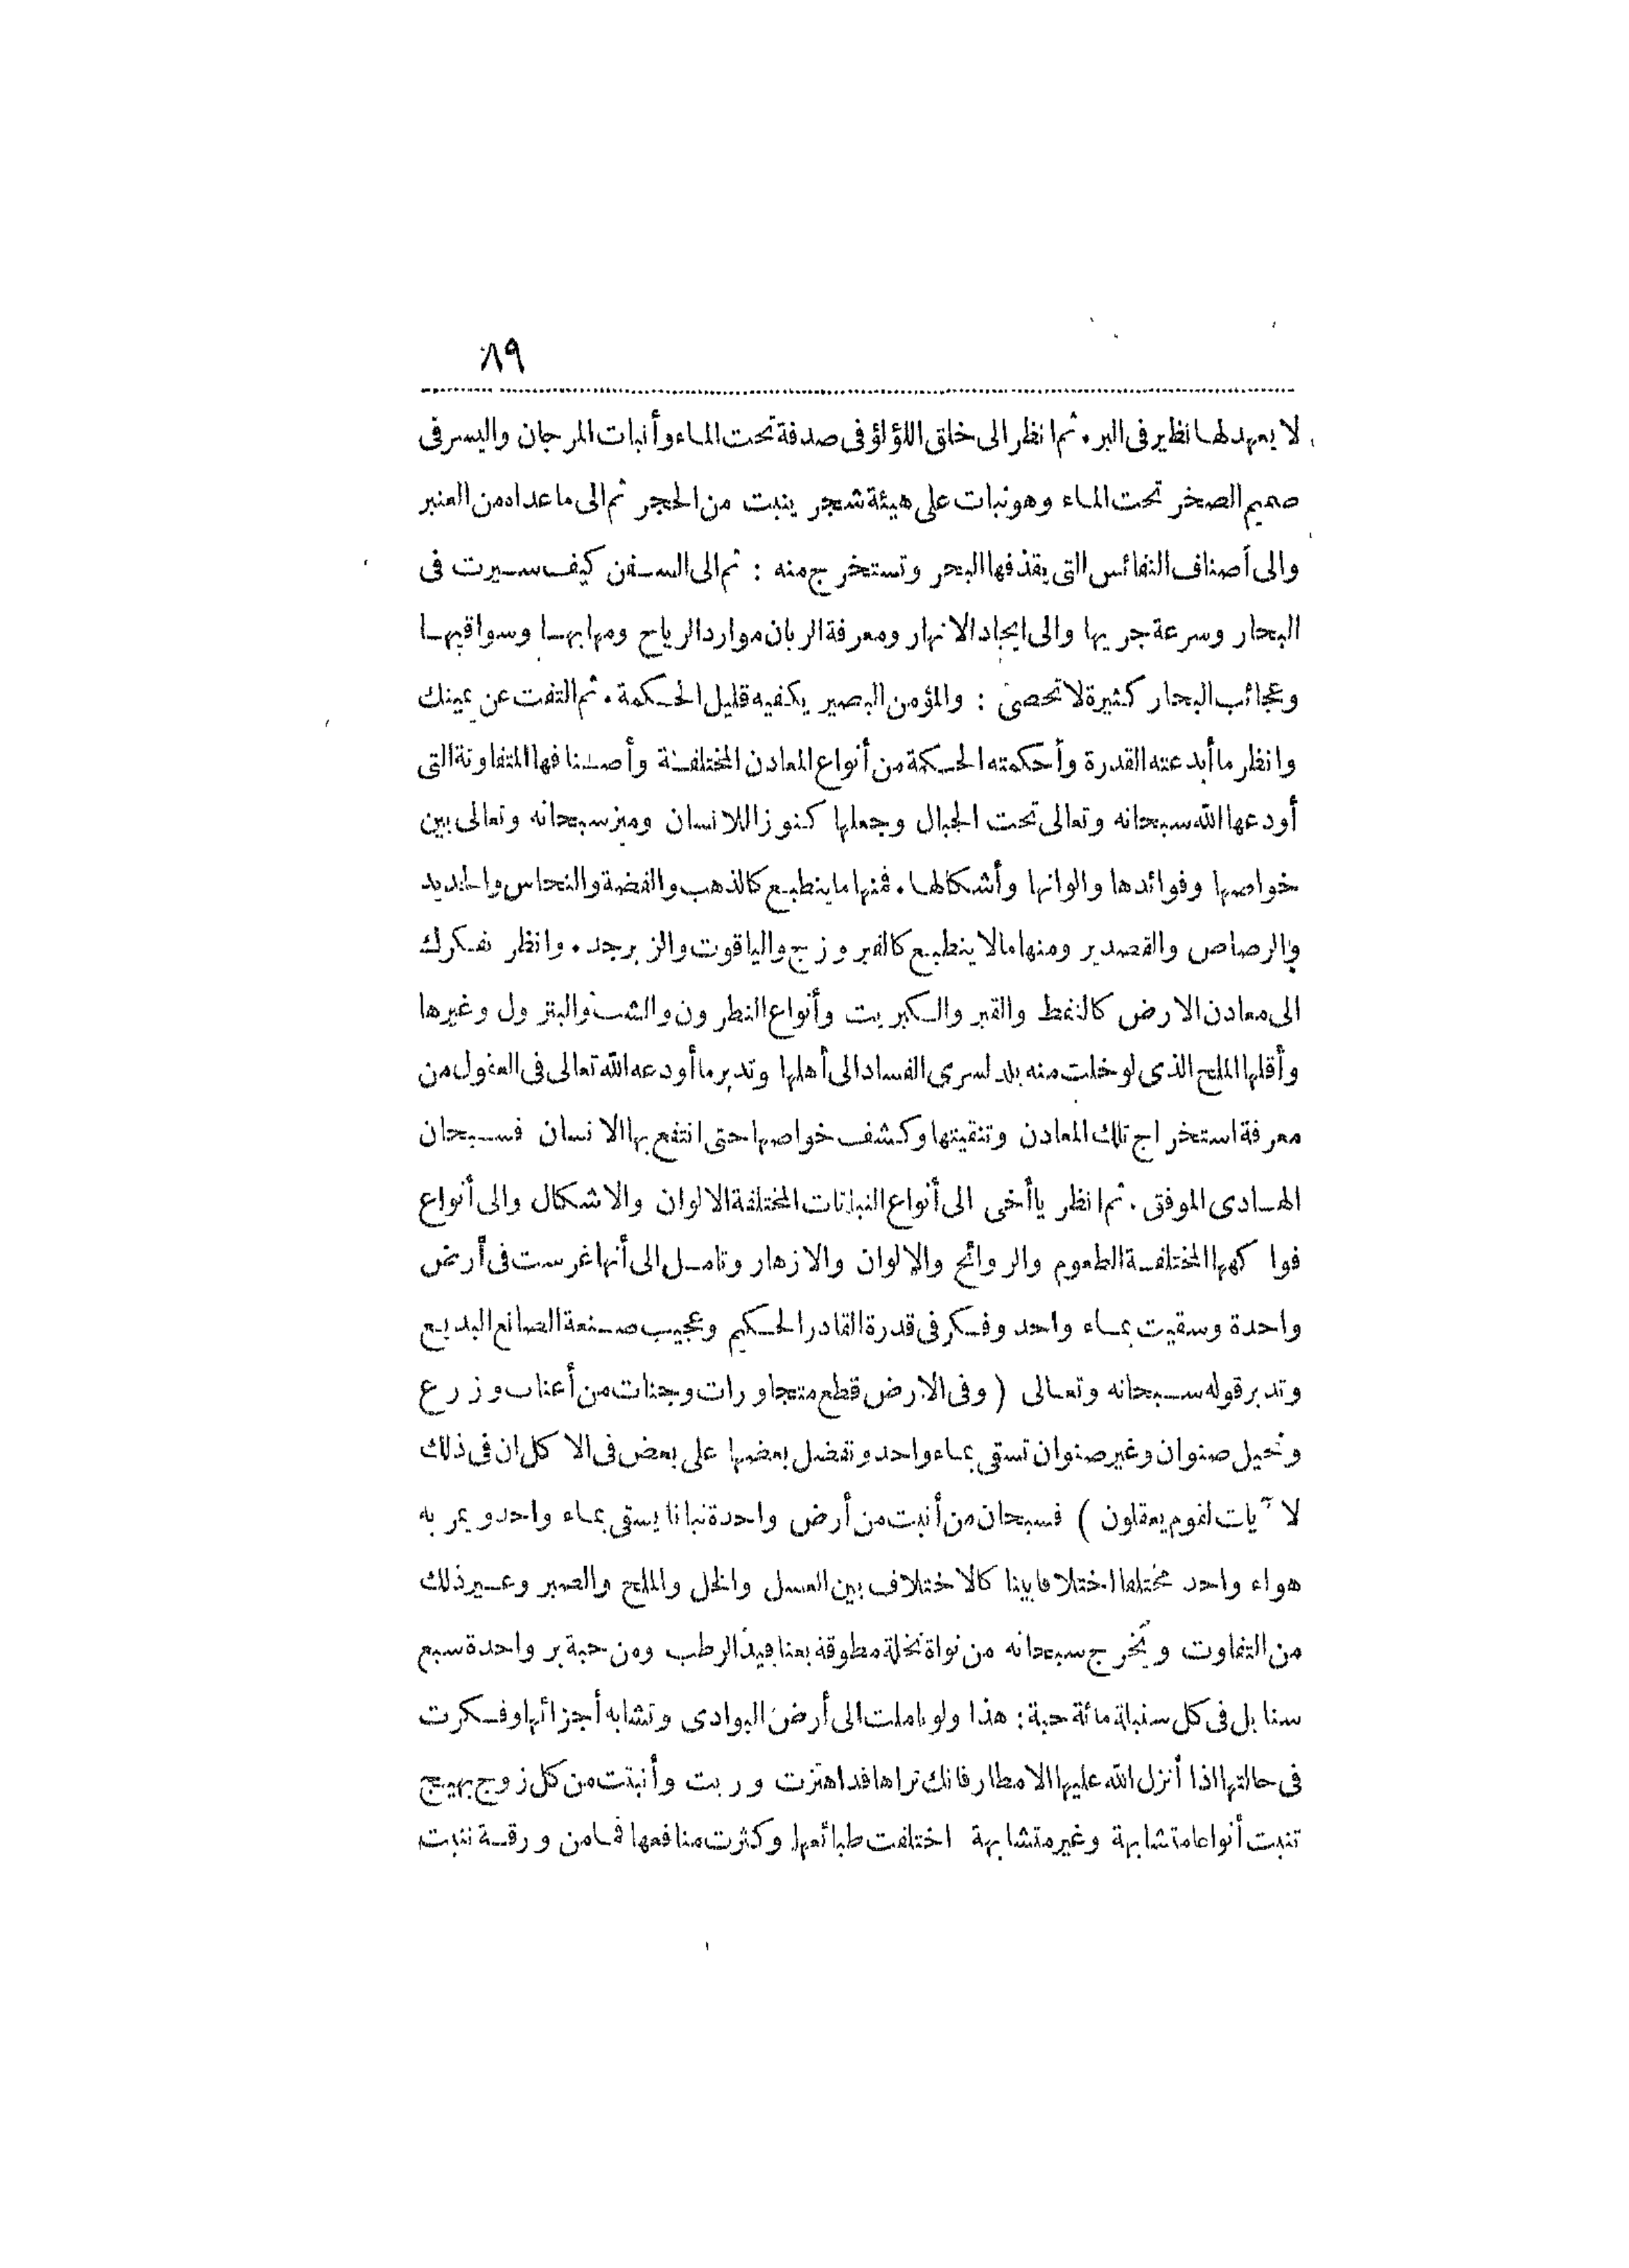 ٨٩
لا يعهد لها نظير فى البر . ثم انظر الى خلق اللؤلؤ فى صدفة تحت الماء وأنبات المرجان واليسر فى
صميم الصخر تحت الماء وهو نبات على هيئة شجر ينبت من الحجر ثم الى ما عداه من العنبر
والى أصناف النفائس التى يقذفها البحر وتستخرج منه : ثم الى السفن كيف سيرت فى
البحار وسرعة جريها والى ايجاد الانهار ومعرفة الربان موارد الرياح ومهابها وسواقيها
وعجائب البحار كثيرة لا تحصى : والمؤمن البصير يكفيه قليل الحكمة . ثم التفت عن يمينك
وانظر ما أبدعته القدرة وأحكمته الحكمة من أنواع المعادن المختلفة وأصنافها المتفاوتة التى
أودعها الله سبحانه وتعالى تحت الجبال وجعلها كنوزا للانسان وميز سبحانه وتعالى بين
خواصها وفوائدها والوانها وأشكالها . فمنها ما ينطبع كالذهب والفضة والنحاس والحديد
والرصاص والقصدير ومنها مالا ينطبع كالفيروزج والياقوت والزبرجد . وانظر بفكرك
الى معادن الارض كالنفط والقير والكبريت وأنواع النطرون والشب والبترول وغيرها
وأقلها الملح الذى لو خلت منه بلد لسرى الفساد الى أهلها وتدبر ما أودعه الله تعالى فى العقول من
معرفة استخراج تلك المعادن وتنقيتها وكشف خواصها حتى انتفع بها الانسان فسبحان
الهادى الموفق . ثم انظر يا أخى الى أنواع النباتات المختلفة الالوان والاشكال والى أنواع
فواكهها المختلفة الطعوم والروائح والالوان والازهار وتامل الى أنها غرست فى أرض
واحدة وسقيت بماء واحد وفكر فى قدرة القادر الحكيم وعجيب صنعة الصانع البديع
وتدبر قوله سبحانه وتعالى ( وفى الارض قطع متجاورات وجنات من أعناب وزرع
ونخيل صنوان وغير صنوان تسقى بماء واحد ونفضل بعضها على بعض فى الاكل ان فى ذلك
لآيات لقوم يعقلون ) فسبحان من أنبت من أرض واحدة نباتا يسقى بماء واحد ويمر به
هواء واحد مختلفا اختلافا بينا كالاختلاف بين العسل والخل والملح والصبر وغير ذلك
من التفاوت ويخرج سبحانه من نواة نخلة مطوقة بعناقيد الرطب ومن حبة بر واحدة سبع
سنابل فى كل سنبلة مائة حبة : هذا ولو تاملت الى أرض البوادى وتشابه أجزائها وفكرت
فى حالتها اذا أنزل الله عليها الامطار فانك تراها قد اهتزت وربت وأنبتت من كل زوج بهيج
تنبت أنواعا متشابهة وغير متشابهة اختلفت طبائعها وكثرت منافعها فما من ورقة تنبت